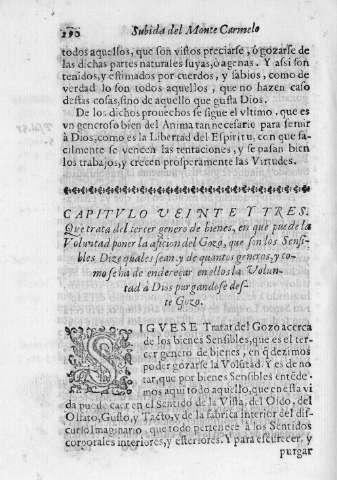 290 Subida del Monte Carmelo
todos aquellos, que son vistos preciarse, ò gozarse de
las dichas partes naturales suyas, ò agenas. Y assi son
tenidos, y estimados por cuerdos, y sabios, como de
verdad lo son todos aquellos, que no hazen caso
destas cosas, sino de aquello que gusta Dios.
De los dichos prouechos se sigue el vltimo, que es
vn generoso bien del Anima tan necessario para seruir
à Dios, como es la Libertad del Espiritu, con que fa-
cilmente se vencen las tentaciones, y se passan bien
los trabajos, y crecen prosperamente las Virtudes.
CAPITVLO VEINTE Y TRES.
Que trata del tercer genero de bienes, en que puede la
Voluntad poner la aficion del Gozo, que son los Sensi-
bles. Dize quales sean, y de quantos generos, y co-
mo se ha de endereçar en ellos la Volun-
tad à Dios purgandose des-
te Gozo.
SIGVESE Tratar del Gozo acerca
de los bienes Sensibles, que es el ter-
cer genero de bienes, en q̃ dezimos
poder gozarse la Volũtad. Y es de no
tar, que por bienes Sensibles entẽde-
mos aqui todo aquello, que en esta vi
da puede caer en el Sentido de la Vista, del Oido, del
Olfato, Gusto, y Tacto, y de la fabrica interior del dis-
curso Imaginario, que todo pertenece à los Sentidos
corporales interiores, y exteriores. Y para escurecer, y
purgar